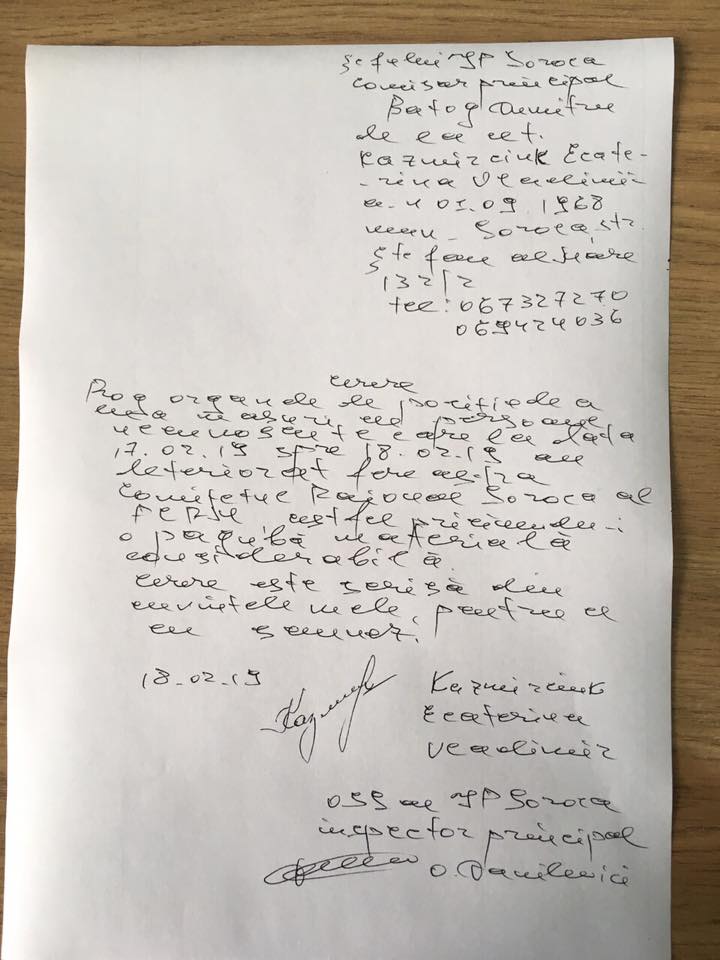 Șefului IP Soroca
comisar principal
Batog Dumitru
de la cet.
Kazmirciuk Ecate-
-rina Vladimir
a.n 01.09.1968
mun. Soroca, str.
Ștefan cel Mare
132/2
tel: 067327270
069424036
cerere
Rog organele de poliție de a
lua măsuri cu persoane
necunoscute care la data
17.02.19 spre 18.02.19 au
deteriorat
Comitetul Raional Soroca al
PCRM astfel pricinundu-i
o pagubă materială
considerabilă.
cerere este scrisă din
cuvintele mele, pentru ce
semnez.
18.02.19
Kazmirciuk
Ecaterina
Vladimir
OSS al IP Soroca
inspector principal
O. Danilevici